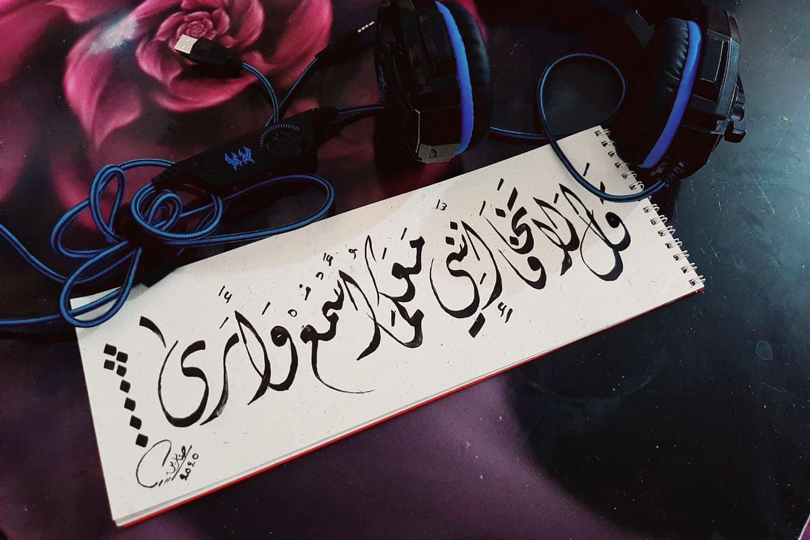 قَالَ لَا تَخَافَا إِنَّنِي مَعَكُمَا أَسْمَعُ وَأَرَىٰ
٢٠٢٠